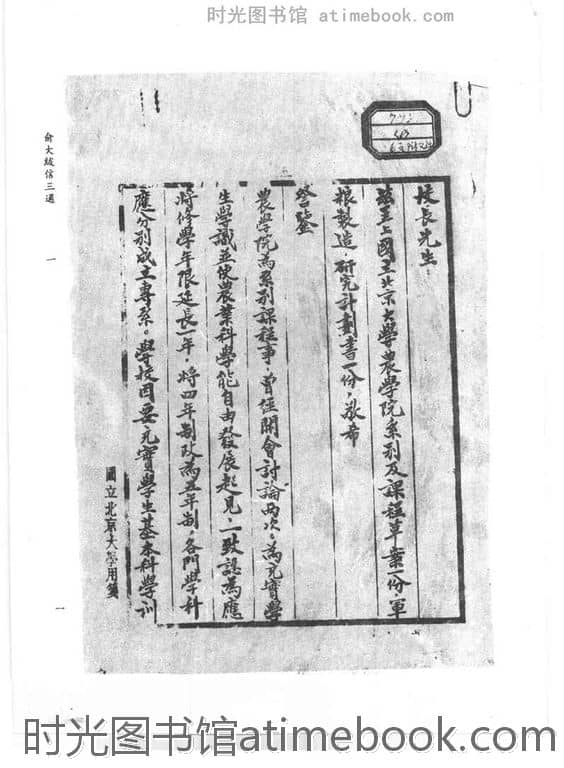 时光图书馆 atimebook.com
俞大紱信三通
一
校長先生：
兹呈上國立北京大學農學院系别及課程草案一份，軍
粮製造，研究計劃書一份，敬希
詧鑒
農學院為系别課程事，曾經開會討論兩次。為充實學
生學識並使農業科學能自由發展起見，一致認為應
將修學年限延長一年，將四年制改為五年制，各門學科
應分别成立專系。學校因要充實學生基本科學訓
國立北京大學用箋
一
时光图书馆atimebook.com